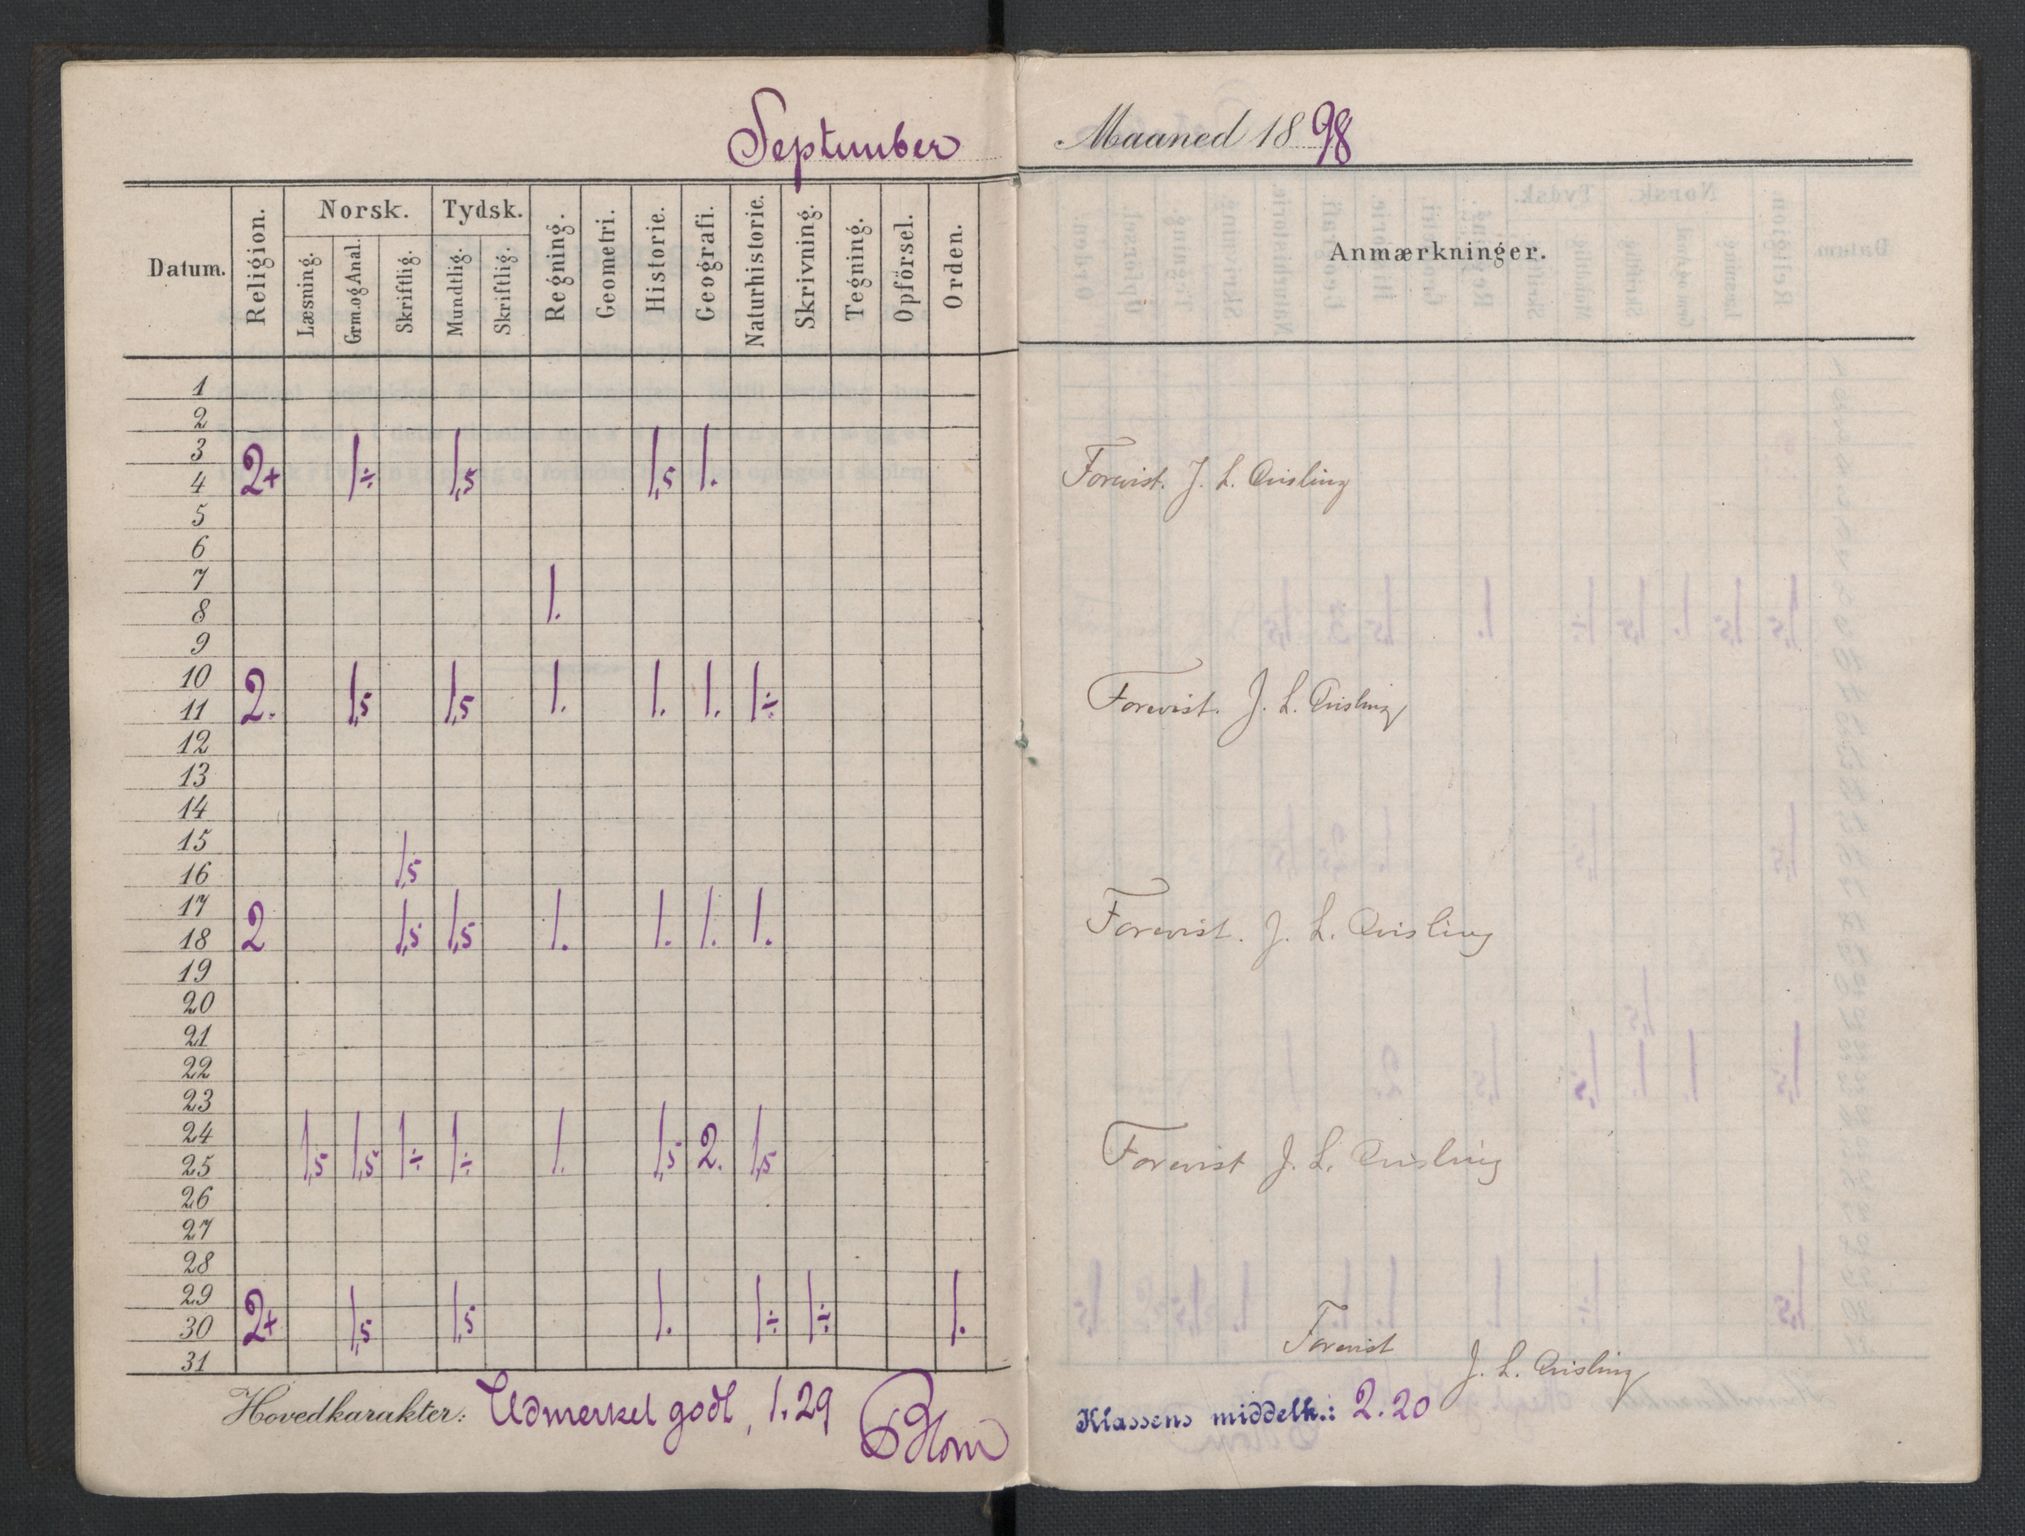 September Maaned 1898
Datum. Religion. Norsk. Tydsk. Regning. Geometri. Historie. Geografi. Naturhistorie. Skrivning. Tegning. Opførsel. Orden. Anmærkninger.
Læsning. Grm. og Anal. Skriftlig. Mundtlig. Skriftlig.
1
2
3
4 2+ 1÷ 1,5 1,5 1. Forevist. J. L. Qvisling
5
6
7
8 1.
9
10
11 2. 1,5 1,5 1. 1. 1. 1÷ Forevist. J. L. Qvisling
12
13
14
15
16 1,5
17
18 2 1,5 1,5 1. 1. 1. 1. Forevist. J. L. Qvisling
19
20
21
22
23
24
25 1,5 1,5 1÷ 1÷ 1. 1,5 2. 1,5 Forevist J. L. Qvisling
26
27
28
29
30 2+ 1,5 1,5 1. 1÷ 1÷ 1. Forevist
31 J. L. Qvisling
Hovedkarakter: Udmerket godt, 1.29 Blom Klassens middelk.: 2.20